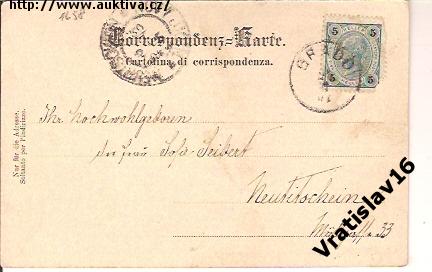 http://www.auktiva.cz/
1658
Correspondenz-Karte.
Cartolina di corrispondenza.
5 5
5 5
GRADO
Nur für die Adresse.
Soltanto per l'indirizzo.
Ihr Hochwohlgeboren
der Frau Sofa Seibert
Neutitschein
33
Vratislav16